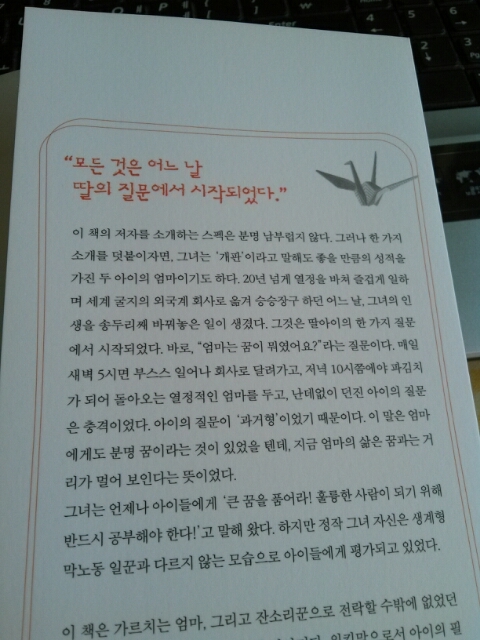 “모든 것은 어느 날
딸의 질문에서 시작되었다.”
이 책의 저자를 소개하는 스펙은 분명 남부럽지 않다. 그러나 한 가지
소개를 덧붙이자면, 그녀는 ‘개판’이라고 말해도 좋을 만큼의 성적을
가진 두 아이의 엄마이기도 하다. 20년 넘게 열정을 바쳐 즐겁게 일하
며 세계 굴지의 외국계 회사로 옮겨 승승장구 하던 어느 날, 그녀의 인
생을 송두리째 바꿔놓은 일이 생겼다. 그것은 딸아이의 한 가지 질문
에서 시작되었다. 바로, “엄마는 꿈이 뭐였어요?”라는 질문이다. 매일
새벽 5시면 부스스 일어나 회사로 달려가고, 저녁 10시쯤에야 파김치
가 되어 돌아오는 열정적인 엄마를 두고, 난데없이 던진 아이의 질문
은 충격이었다. 아이의 질문이 ‘과거형’이었기 때문이다. 이 말은 엄마
에게도 분명 꿈이라는 것이 있었을 텐데, 지금 엄마의 삶은 꿈과는 거
리가 멀어 보인다는 뜻이었다.
그녀는 언제나 아이들에게 ‘큰 꿈을 품어라! 훌륭한 사람이 되기 위해
반드시 공부해야 한다!’고 말해 왔다. 하지만 정작 그녀 자신은 생계형
막노동 일꾼과 다르지 않는 모습으로 아이들에게 평가되고 있었다.
이 책은 가르치는 엄마, 그리고 잔소리꾼으로 전락할 수밖에 없었던
아이의
Enter
4
5
6
2
3